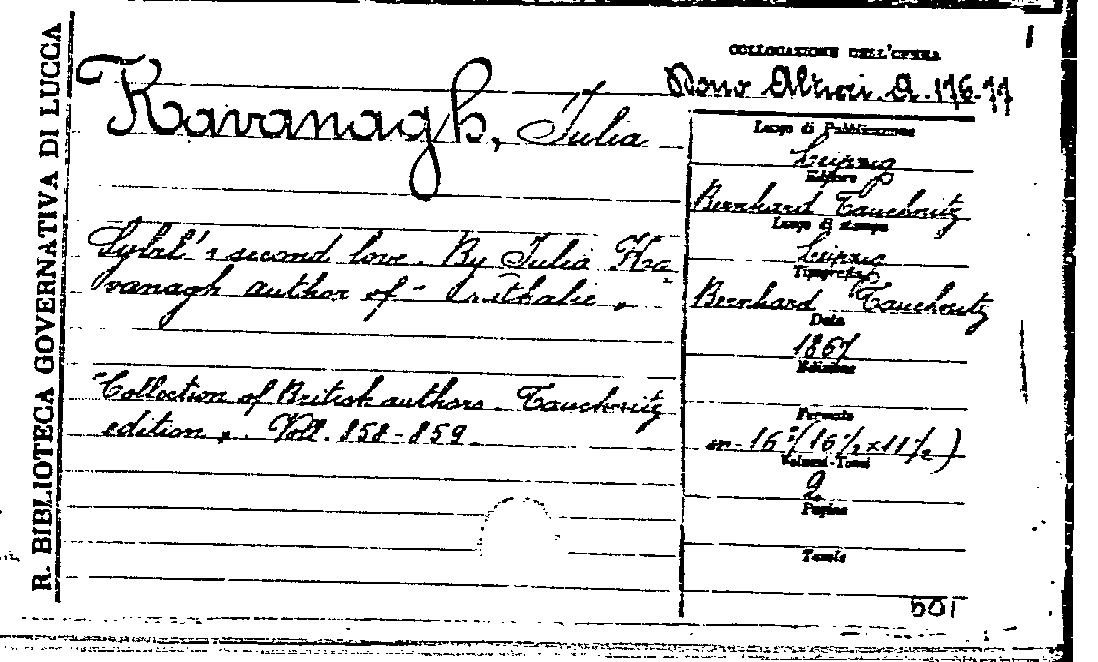 R. BIBLIOTECA GOVERNATIVA DI LUCCA
Kavanagh, Julia
Sybil's second love. By Julia Ka-
vanagh author of "Nathalie„
"Collection of British authors. Tauchnitz
edition„. Voll. 858-859.
COLLOCAZIONE DELL'OPERA
Dono Altieri. A. 176-77
Luogo di Pubblicazione
Leipzig
Editore
Bernhard Tauchnitz
Luogo di stampa
Leipzig
Tipografia
Bernhard Tauchnitz
Data
1867
Edizione
Formato
in-16º (16 1/2 x 11 1/2)
Volumi-Tomi
2
Pagine
Tavole
501